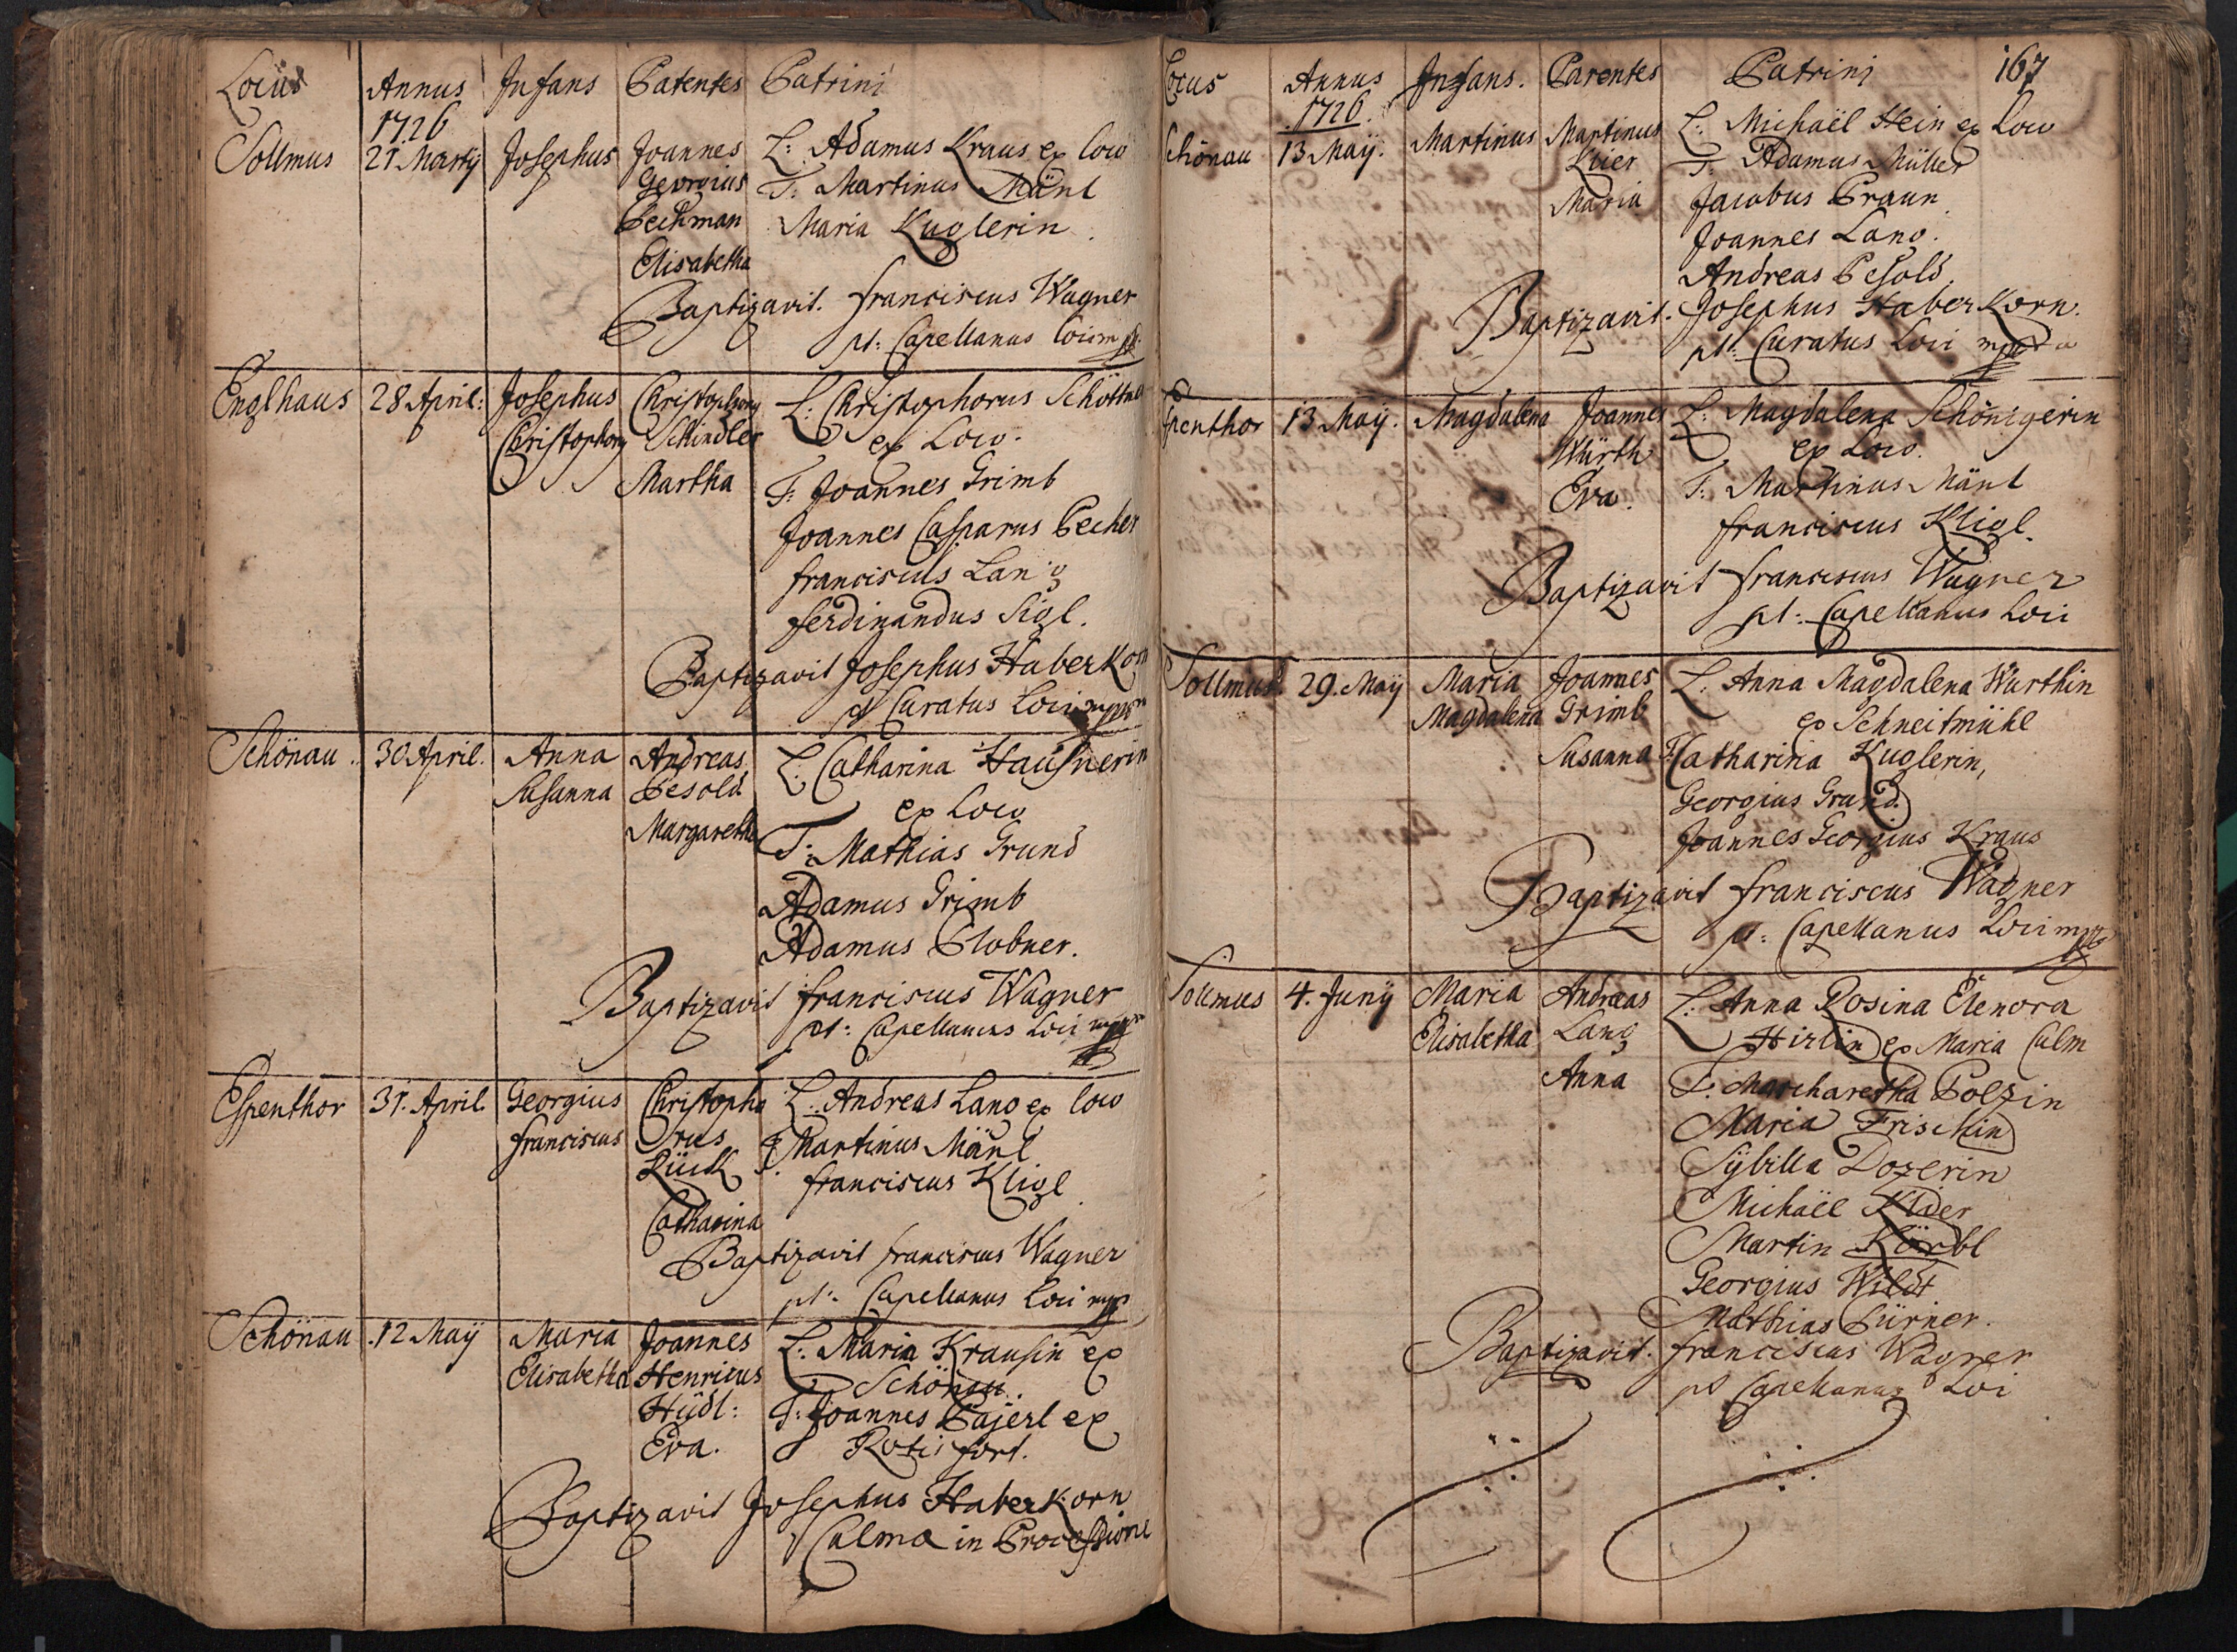 Locus Annus Infans Parentes Patrini
1726
Sollmus 21 Martij Josephus Joannes L: Adamus Kraus ex loco
Georgius T: Martinus Mänl
Pechman Maria Kuglerin.
Elisabetha
Baptizavit. Franciscus Wagner
pt: Capellanus loci mp
Englhaus 28 April: Josephus Christophorg L: Christophorus Schöttne
Christophorg Schindler ex Loco.
Martha T: Joannes Grimb
Joannes Casparus Becher
Franciscus Lang
Ferdinandus Sigl.
Baptizavit Josephus Haberkorn
pt Curatus Loci
Schönau. 30 April. Anna Andreas L: Catharina Hausnerin
Susanna Pesold ex Loco
Margaretha T: Mathias Grund
Adamus Grimb
Adamus Globner.
Baptizavit Franciscus Wagner
pt: Capellanus Loci
Espenthor 31. April. Georgius Christopho L: Andreas Lang ex loco
Franciscus rus T: Martinus Mänl
Lück Franciscus Kligl
Catharina
Baptizavit Franciscus Wagner
pt: Capellanus Loci mp
Schönau. 12 Maÿ Maria Joannes L: Maria Krausin ex
Elisabetha Henricus Schönau.
Hüdl: T: Joannes Bajerl ex
Eva.
Baptizavit Josephus Haberkorn
Culma in Processione
Locus Annus Infans. Parentes Patrinj 167
1726.
Schönau 13 Maÿ. Martinus Martinus L: Michaël Hein ex Loco
T: Adamus Müller
Maria Jacobus Praun
Joannes Lang.
Andreas Pesold.
Baptizavit. Josephus Haberkorn.
pt: Curatus Loci
Espenthor 13 Maÿ. Magdalena Joannes L: Magdalena Schönigerin
Würth ex Loco.
Eva. T: Martinus Mänl
Franciscus Kligl.
Baptizavit Franciscus Wagner
pt: Capellanus Loci
Sollmus. 29. Maÿ Maria Joannes L: Anna Magdalena Würthin
Magdalena Grimb ex Schneitmühl
Susanna T: Catharina Kuglerin,
Georgius Grund
Joannes Georgius Kraus
Baptizavit Franciscus Wagner
pt: Capellanus Loci mp
Sollmus 4. Junÿ Maria Andreas L: Anna Rosina Elenora
Elisabetha Lang Hirlin ex Maria Culm
Anna T: Marcharetha Polzin
Maria Frischin
Sÿbilla Dozerin
Michaël Elder
Martin Körbl
Georgius Wildt
Mathias Pürner.
Baptizavit. Franciscus Wagner
pt Capellanus Loci